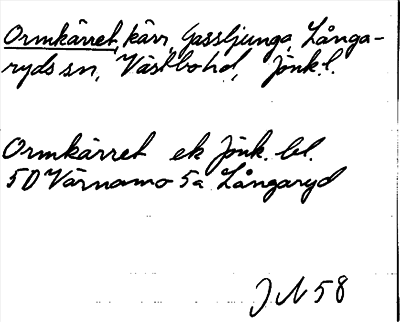 Ormkärret, kärr, Gassljunga, Långa-
ryds sn, Västbo hd, Jönk. l.
Ormkärret ek Jönk. bl.
5D Värnamo 5a Långaryd
JN 58